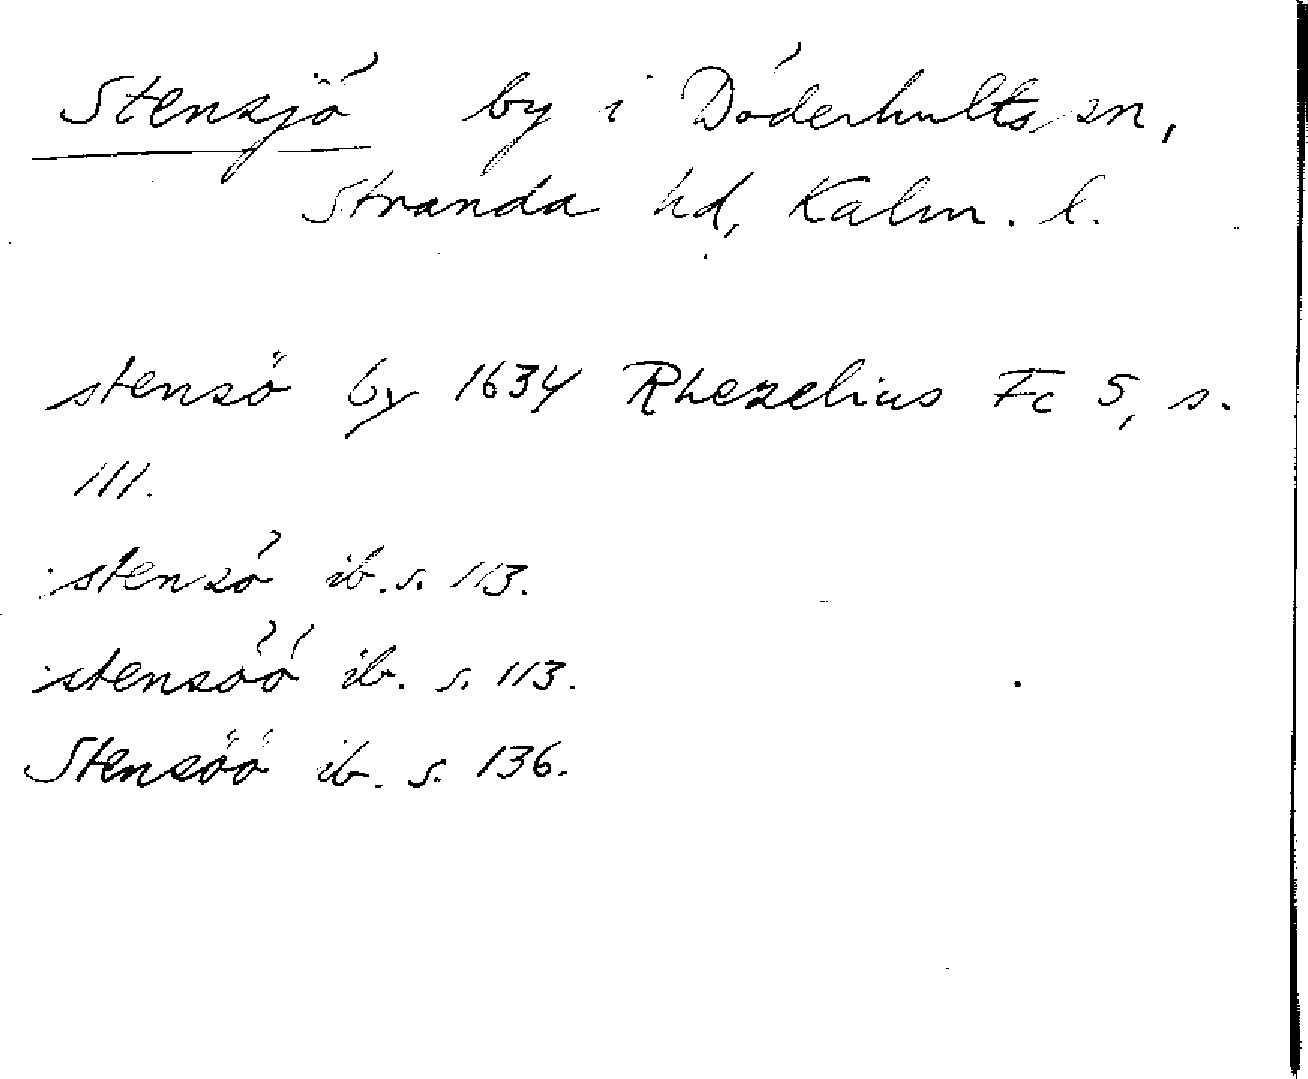 Stensjö by i Döderhults sn,
Stranda hd, Kalm. l.
stensö by 1634 Rhezelius Fc 5, s.
111.
stensö ib. s. 113.
stensöö ib. s. 113.
Stensöö ib. s. 136.